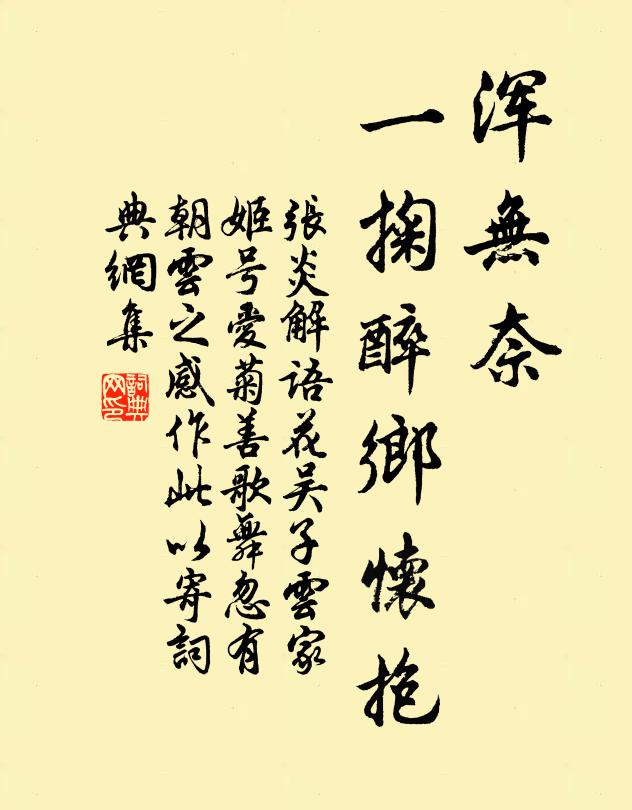 浑無奈
一掬醉鄉懷抱
張炎解語花吴子雲家
姬号愛菊善歌舞忽有
朝雲之感作此以寄詞
典網集
詞典网印